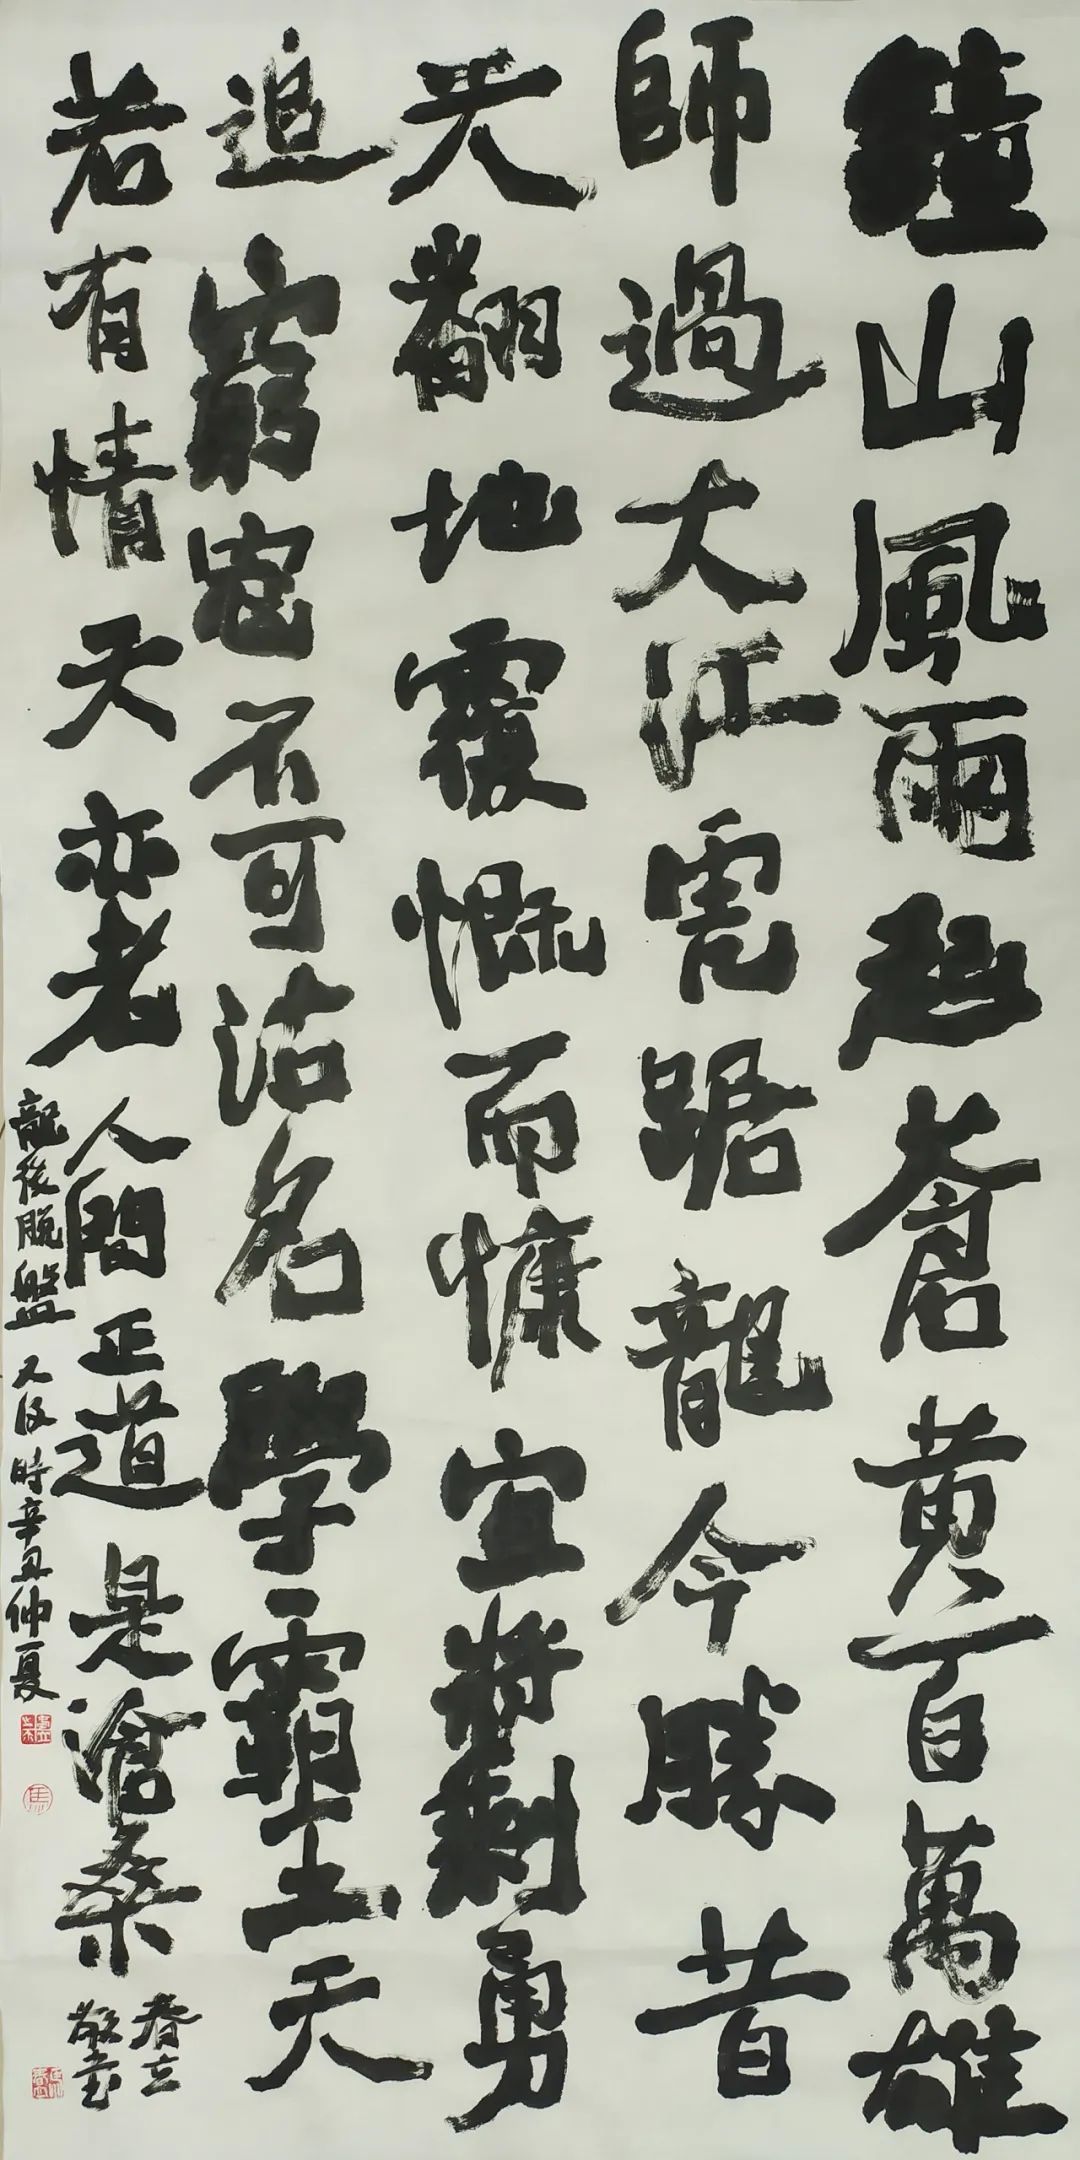 鐘山風雨起蒼黃百萬雄
師過大江虎踞龍今勝昔
天翻地覆慨而慷宜將剩勇
追窮寇不可沽名學霸王天
若有情天亦老人間正道是滄桑
春立
敬書
龍後脫盤 又 時辛丑仲夏